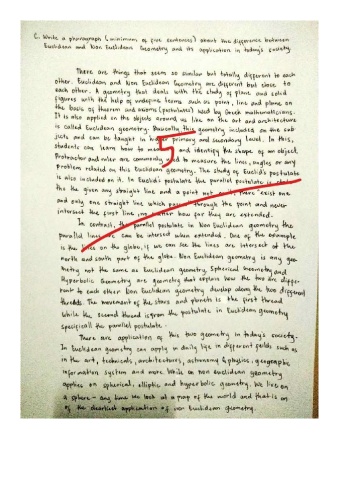 C. Write a paragraph (minimum of five sentences) about the difference between
Euclidean and Non Euclidean Geometry and its application in today's society.
There are things that seem so similar but totally different to each
other. Euclidean and Non Euclidean Geometry are different but close to
each other. A geometry that deals with the study of plane and solid
figures with the help of undefine terms such as point, line and plane on
the basis of theorem and axioms (postulates) used by Greek mathematicians.
It is also applied on the objects around us like on the art and architecture
is called Euclidean geometry. Basically this geometry included on the sub
jects and can be taught in higher primary and secondary level. In this,
students can learn how to and identify the shape of an object.
Protractor and ruler are commonly used to measure the lines, angles or any
problem related on this Euclidean geometry. The study of Euclid's postulate
is also included on it. In Euclid's postulate the parallel postulate is
the the given any straight line and a point not exist one
and only one straight line which passes through the point and never
intersect the first line, no matter how far they are extended.
In contrast, the parallel postulate in Non Euclidean geometry the
parallel lines can be intersect when extended. One of the example
is the lines on the globe, if we can see the lines are intersect at the
north and south part of the globe. Non Euclidean geometry is any geo
metry not the same as Euclidean geometry. Spherical Geometry and
Hyperbolic Geometry are geometry that explain how the two are differ
ent to each other. Non Euclidean geometry develop along the two different
threads. The movement of the stars and planets is the first thread
while the second thread is from the postulate in Euclidean geometry
specifically the parallel postulate.
There are application of this two geometry in today's society.
In Euclidean geometry can apply in daily life in different fields such as
in the art, technicals, architectures, astronomy & physics, geographic
information system and more. While on non euclidean geometry
applies on spherical, elliptic and hyperbolic geometry. We live on
a sphere - any time we look at a map of the world and that is on
of the clearliest application of non Euclidean geometry.
5